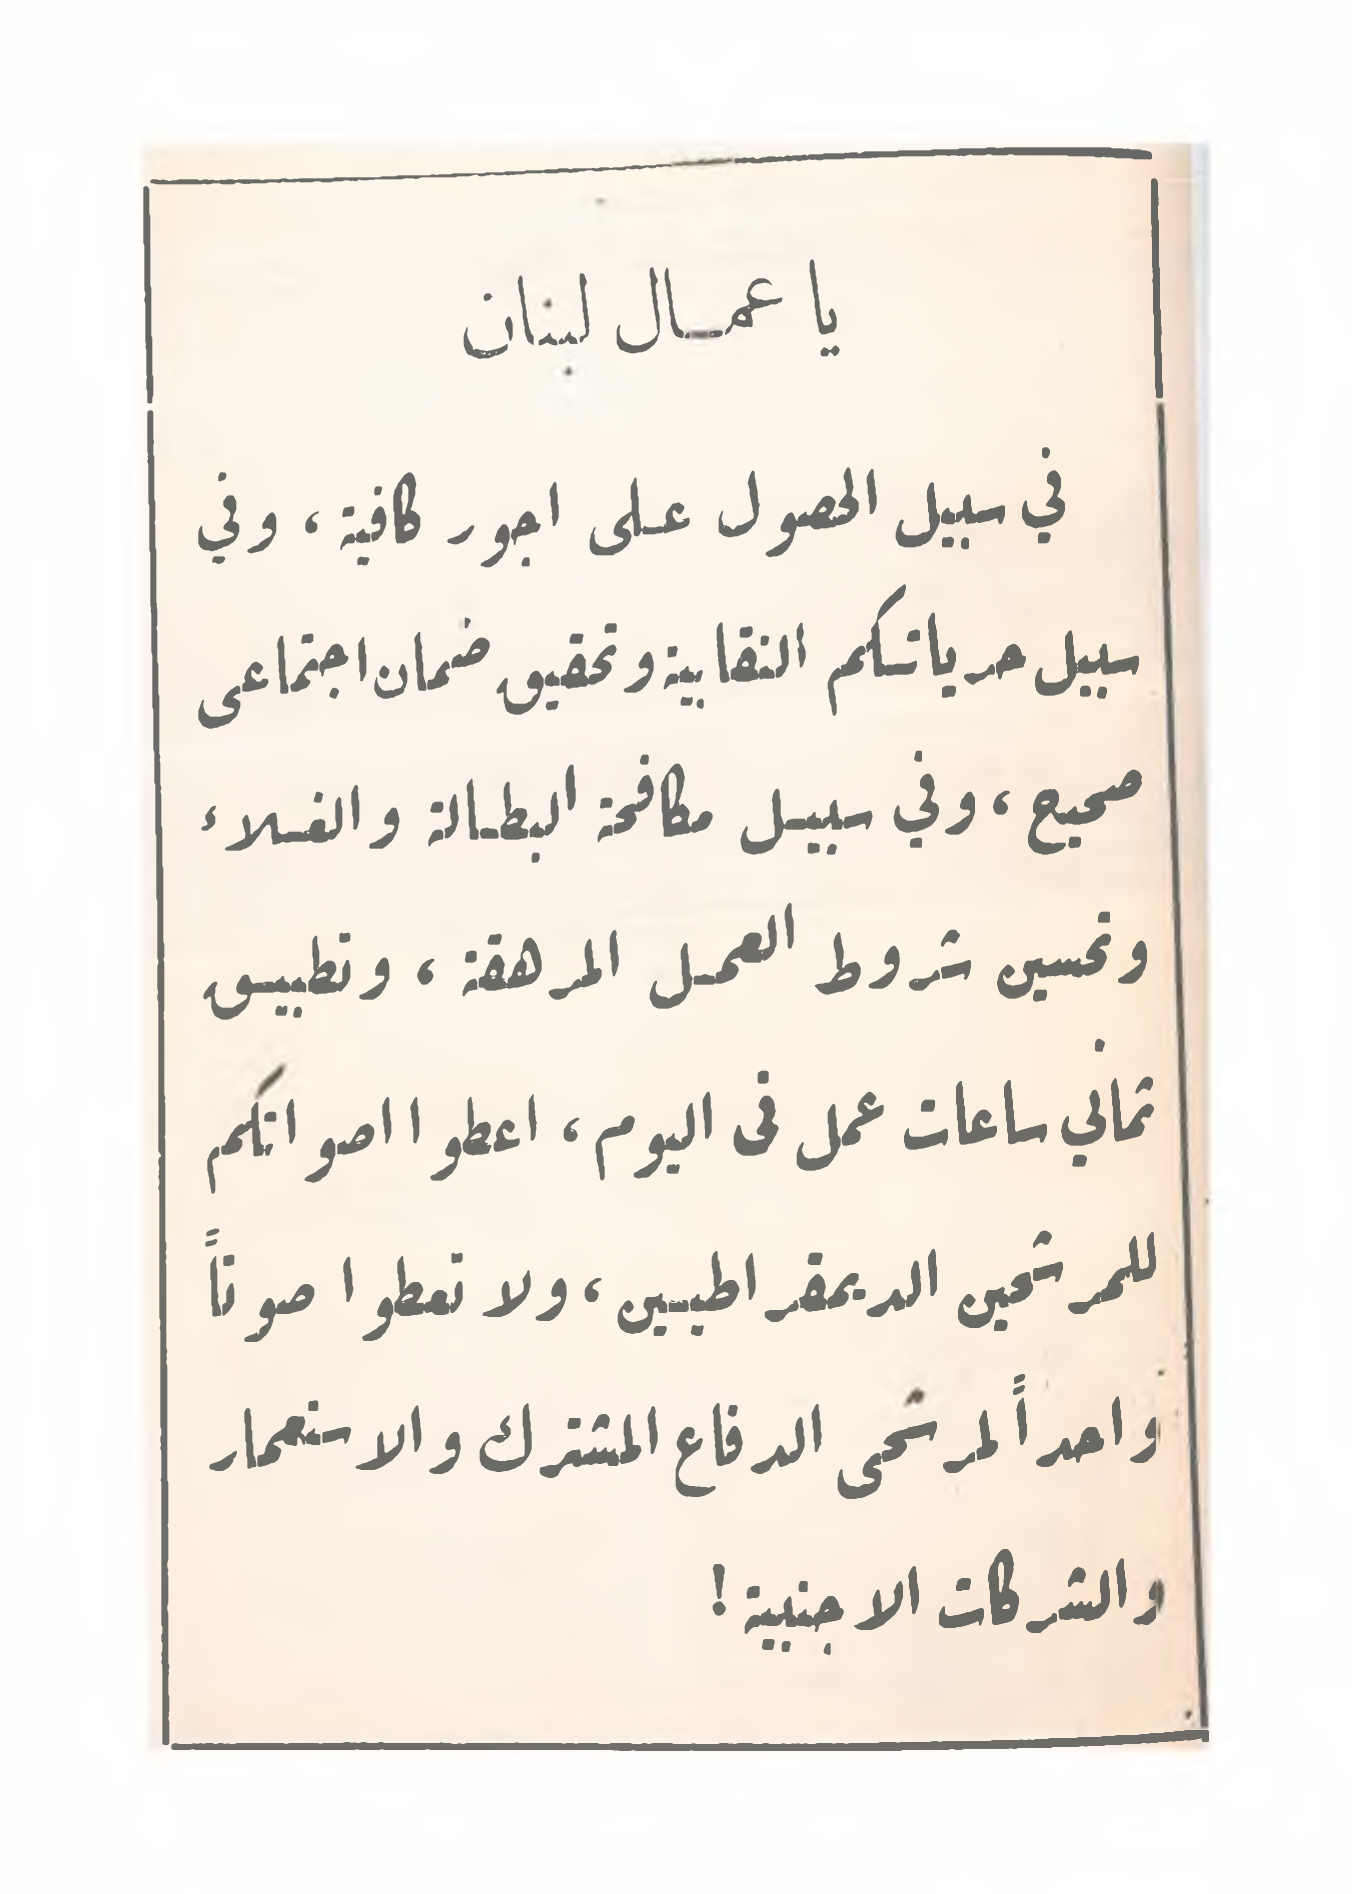 يا عمــال لبنان
في سبيل الحصول عـلى اجور كافية ، وفي
سبيل حرياتـكم النقابية وتحقيق ضمان اجتماعى
صحيح ، وفي سبيـل مكافحة البطـالة والغـلاء
وتحسين شروط العمـل المرهقة ، وتطبيـق
ثماني ساعات عمل فى اليوم ، اعطوا اصواتكم
للمرشحين الديمقراطيـين ، ولا تعطوا صوتاً
واحداً لمرشحى الدفاع المشترك والاستعمار
والشركات الاجنبية !